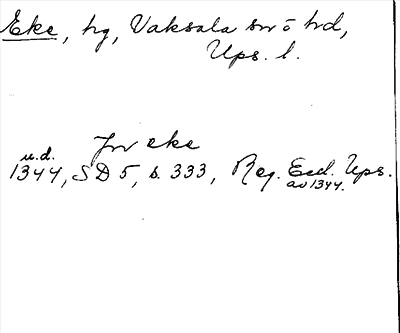 Eke, hg, Vaksala sn o hd,
Ups. l.
Jn eke
u.d.
1344, SD 5, s. 333, Reg. Eccl. Ups.
av 1344.